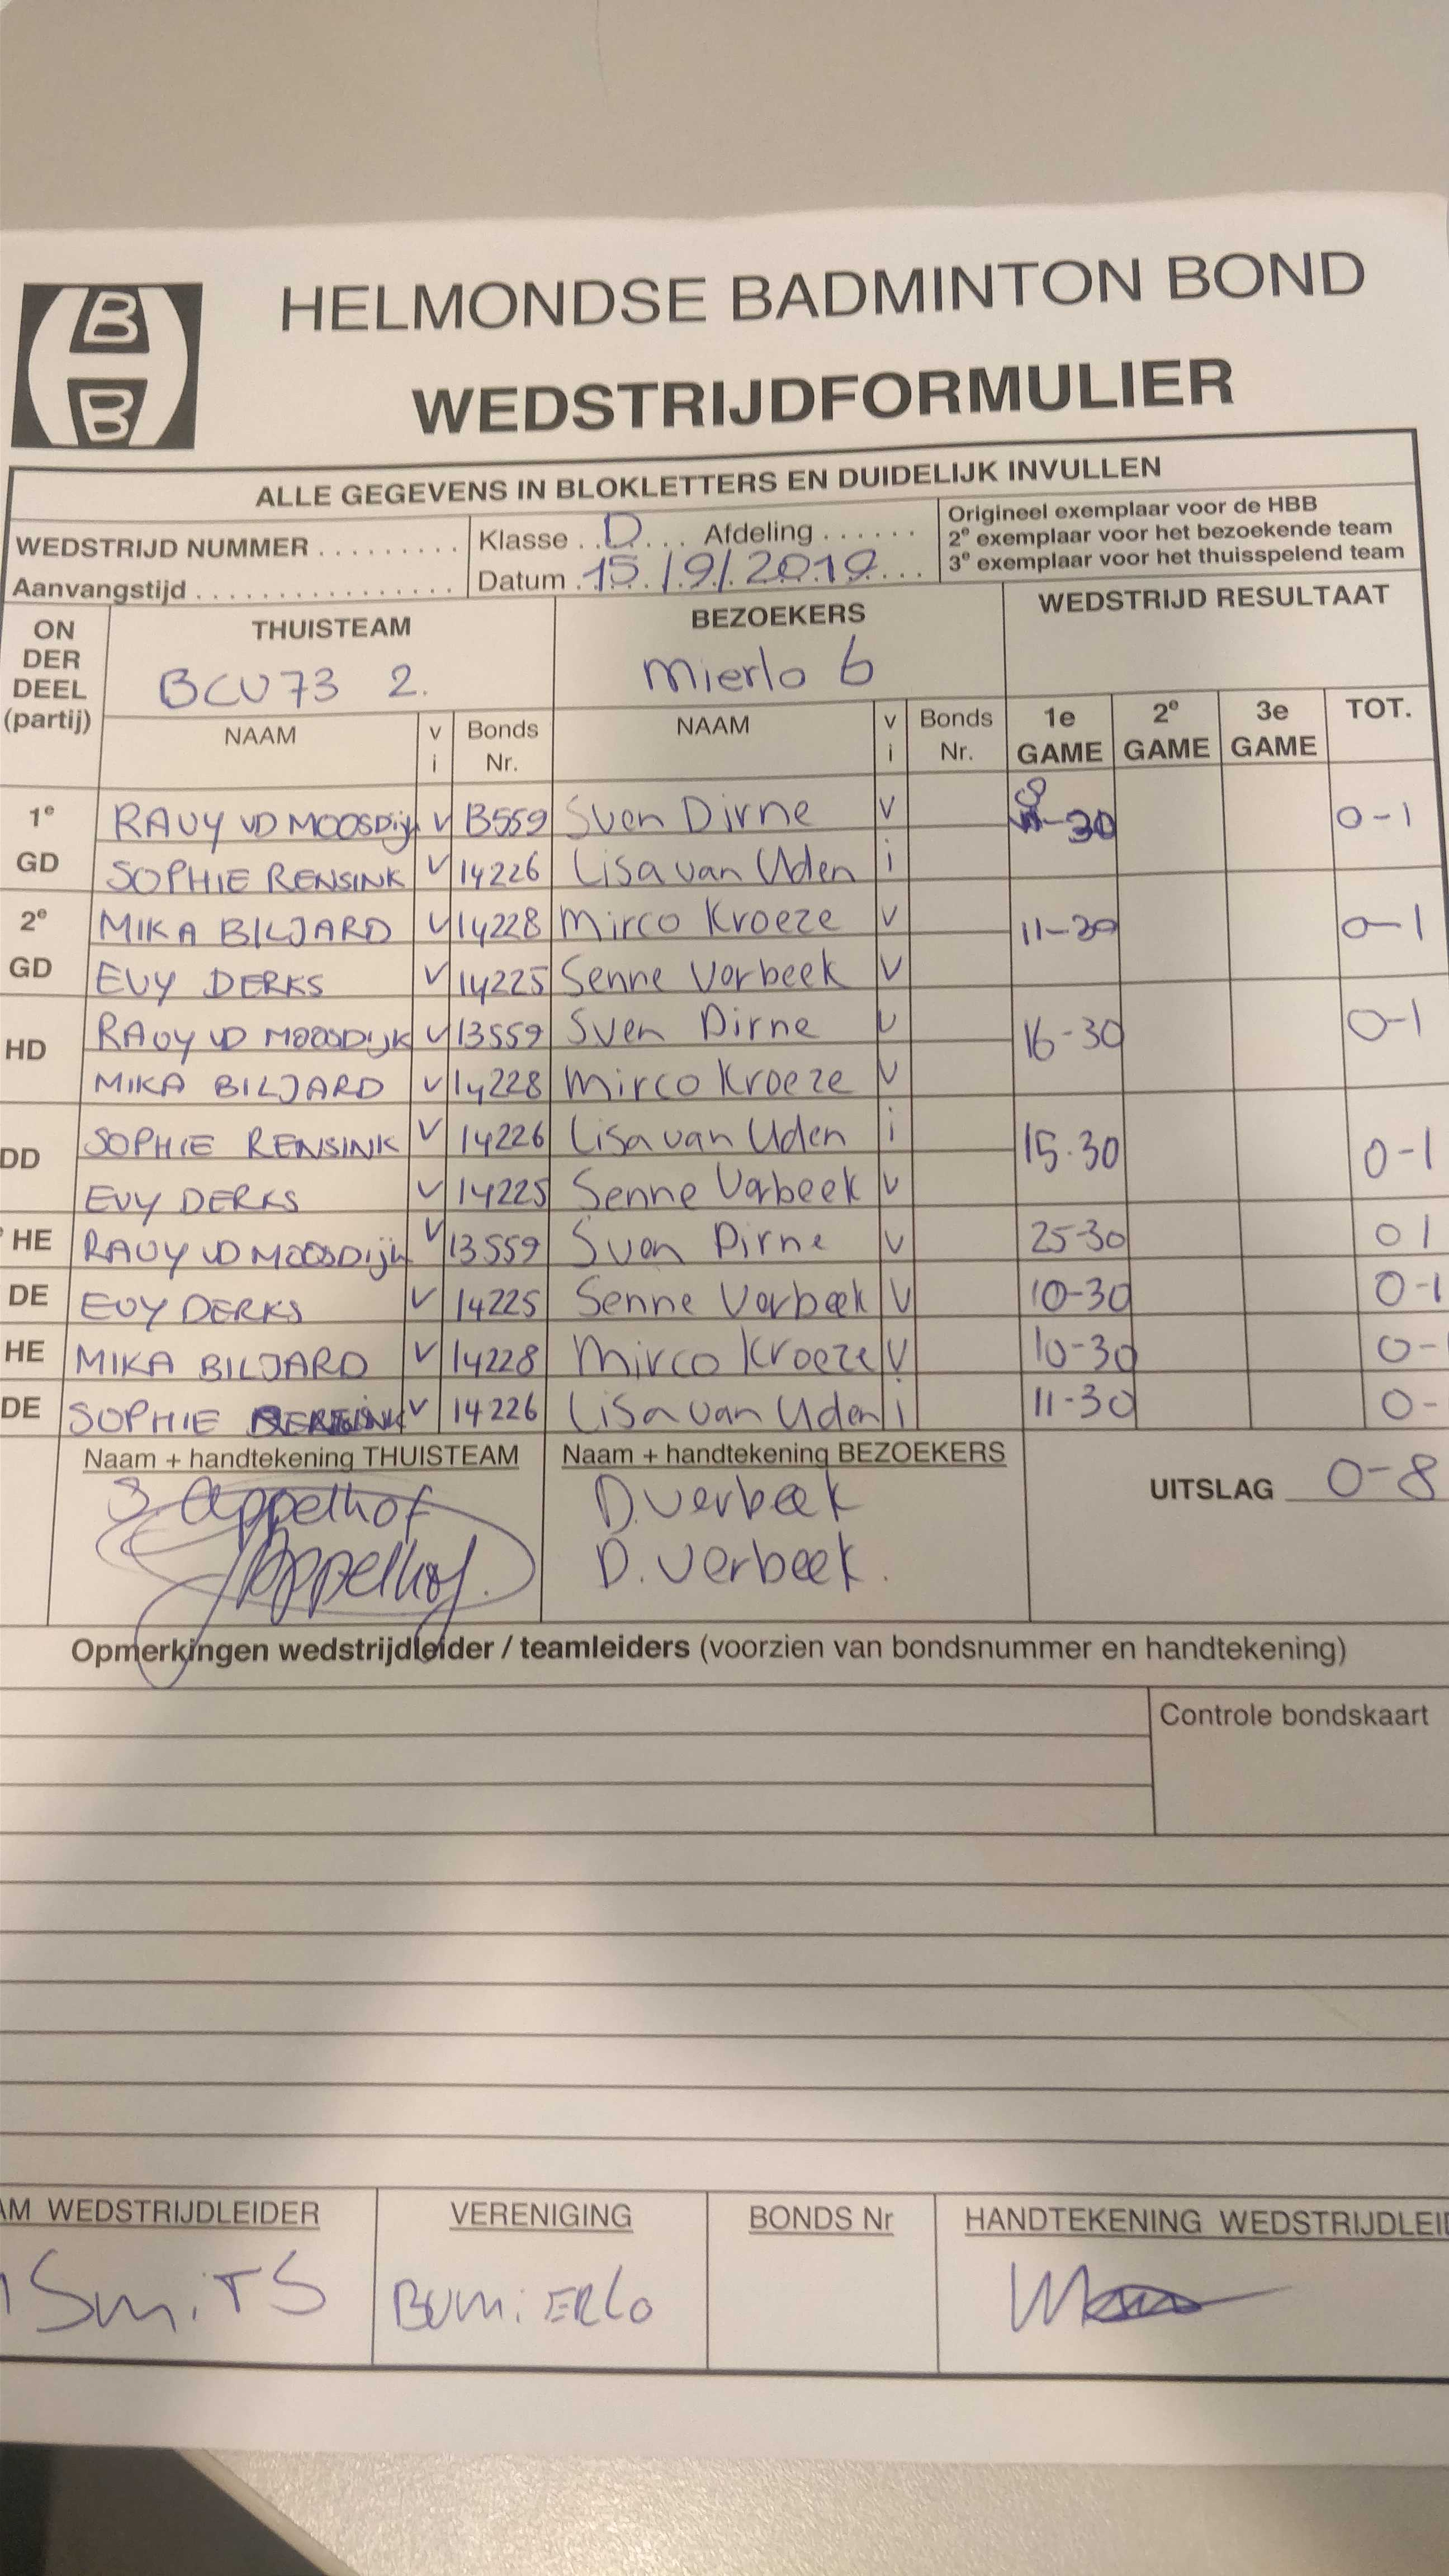 B
B
HELMONDSE BADMINTON BOND
WEDSTRIJDFORMULIER
ALLE GEGEVENS IN BLOKLETTERS EN DUIDELIJK INVULLEN
WEDSTRIJD NUMMER ......... Klasse .. D ... Afdeling ...... Origineel exemplaar voor de HBB
2e exemplaar voor het bezoekende team
Aanvangstijd ................ Datum . 15/9/2019 ... 3e exemplaar voor het thuisspelend team
ON DER DEEL (partij) THUISTEAM BEZOEKERS WEDSTRIJD RESULTAAT
BCV73 2. Mierlo 6
NAAM v i Bonds Nr. NAAM v i Bonds Nr. 1e GAME 2e GAME 3e GAME TOT.
1e RAVY VD MOOSDijk V 13559 Sven Dirne V 8-30 0-1
GD SOPHIE RENSINK V 14226 Lisa van Uden i
2e MIKA BILJARD V 14228 Mirco Kroeze V 11-30 0-1
GD EVY DERKS V 14225 Senne Verbeek V
HD RAVY VD MOOSDIJK V 13559 Sven Dirne V 16-30 0-1
MIKA BILJARD V 14228 Mirco Kroeze V
DD SOPHIE RENSINK V 14226 Lisa van Uden i 15-30 0-1
EVY DERKS V 14225 Senne Verbeek V
HE RAVY VD MOOSDijk V 13559 Sven Dirne V 25-30 0 1
DE EVY DERKS V 14225 Senne Verbeek V 10-30 0-1
HE MIKA BILJARD V 14228 Mirco Kroeze V 10-30 0-
DE SOPHIE RENSINK V 14226 Lisa van Uden i 11-30 0-
Naam + handtekening THUISTEAM Naam + handtekening BEZOEKERS UITSLAG 0-8
Appelhof D. Verbeek
Appelhof. D. Verbeek.
Opmerkingen wedstrijdleider / teamleiders (voorzien van bondsnummer en handtekening)
Controle bondskaart
AM WEDSTRIJDLEIDER VERENIGING BONDS Nr HANDTEKENING WEDSTRIJDLEI
SmiTS BVMiERLO